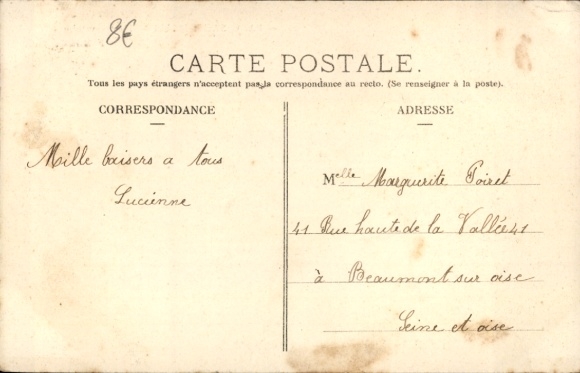 8€
CARTE POSTALE.
Tous les pays étrangers n'acceptent pas la correspondance au recto. (Se renseigner à la poste).
CORRESPONDANCE
Mille baisers a tous
Lucienne
ADRESSE
Melle Marguerite Poiret
41 Rue haute de la Vallée 41
à Beaumont sur oise
Seine et oise